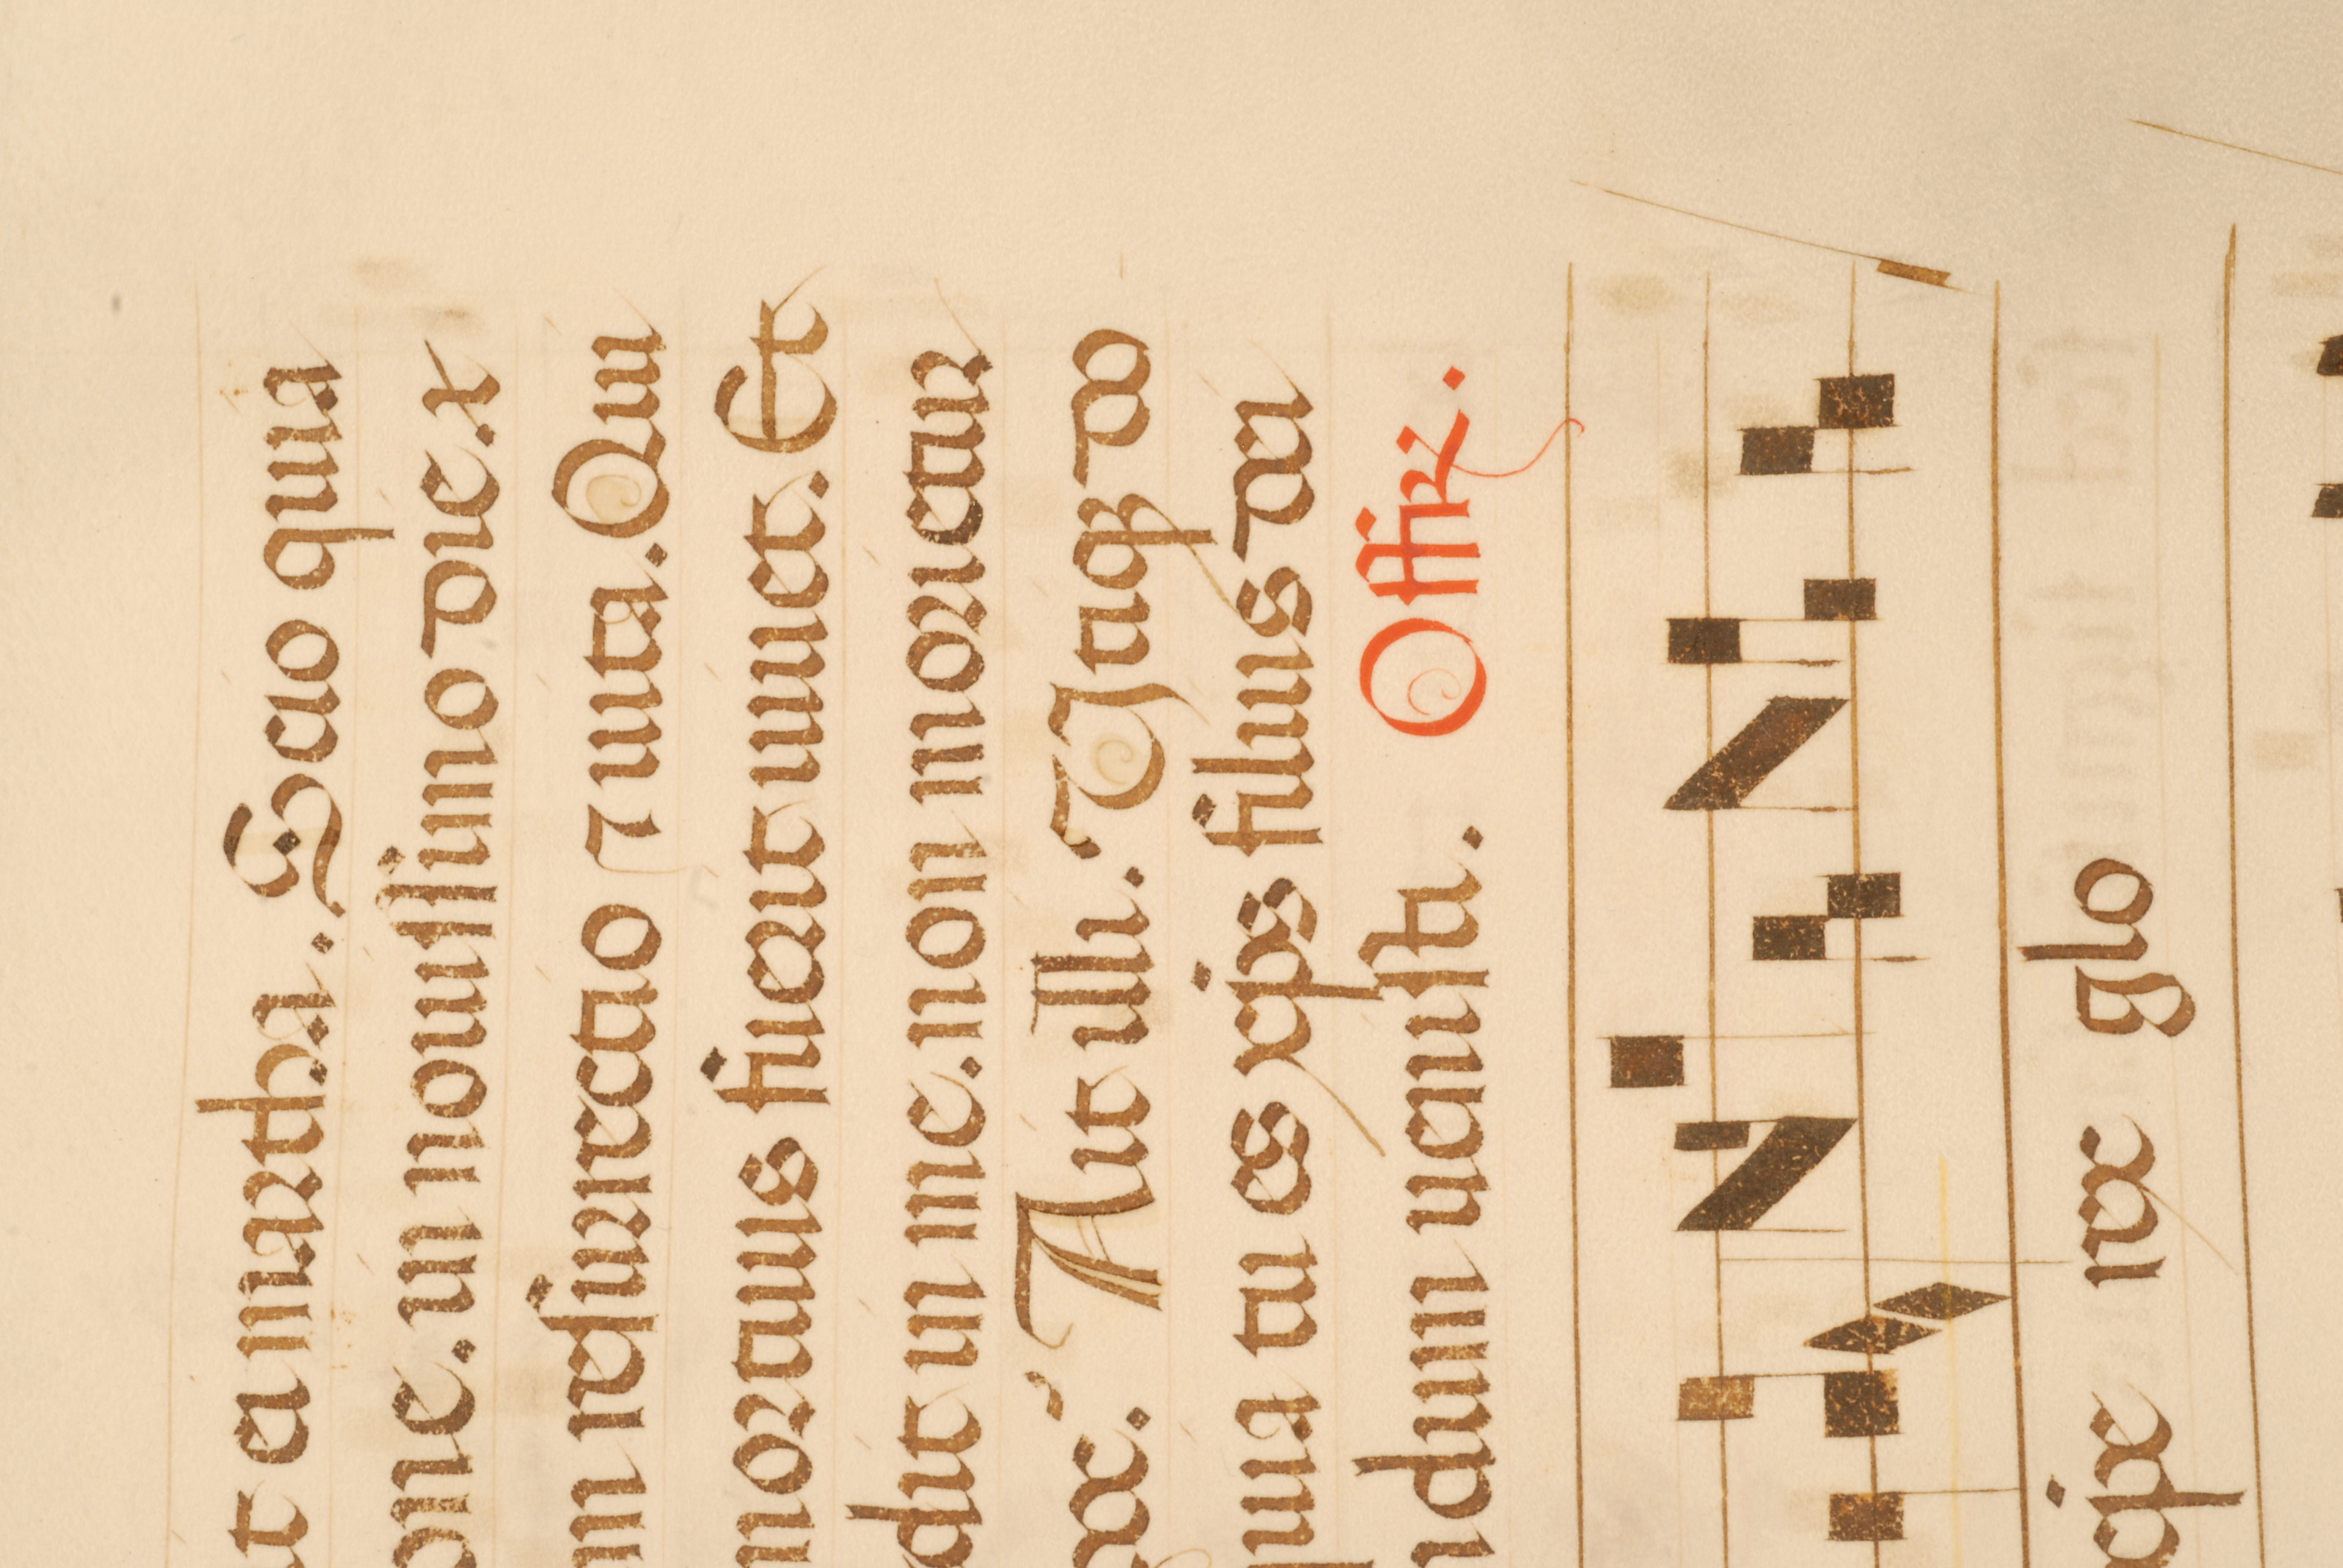 t ei martha. Scio quia
one. in nouissimo die. x
m resurrectio ⁊ uita. Qui
mortuus fuerit uiuet. Et
dit in me. non morietur
hoc? Ait illi. Utiqꝫ do
uia tu es xp̄s filius dei
ndum uenisti. Offir.
xp̄e rex glo